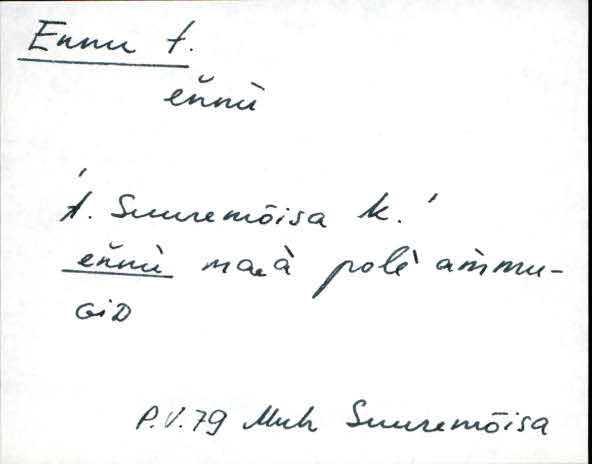 Ennu t.
eňnù
't. Suuremõisa k.'
eňnù maà polè am̀mu-
GiD
P.V.79 Muh Suuremõisa